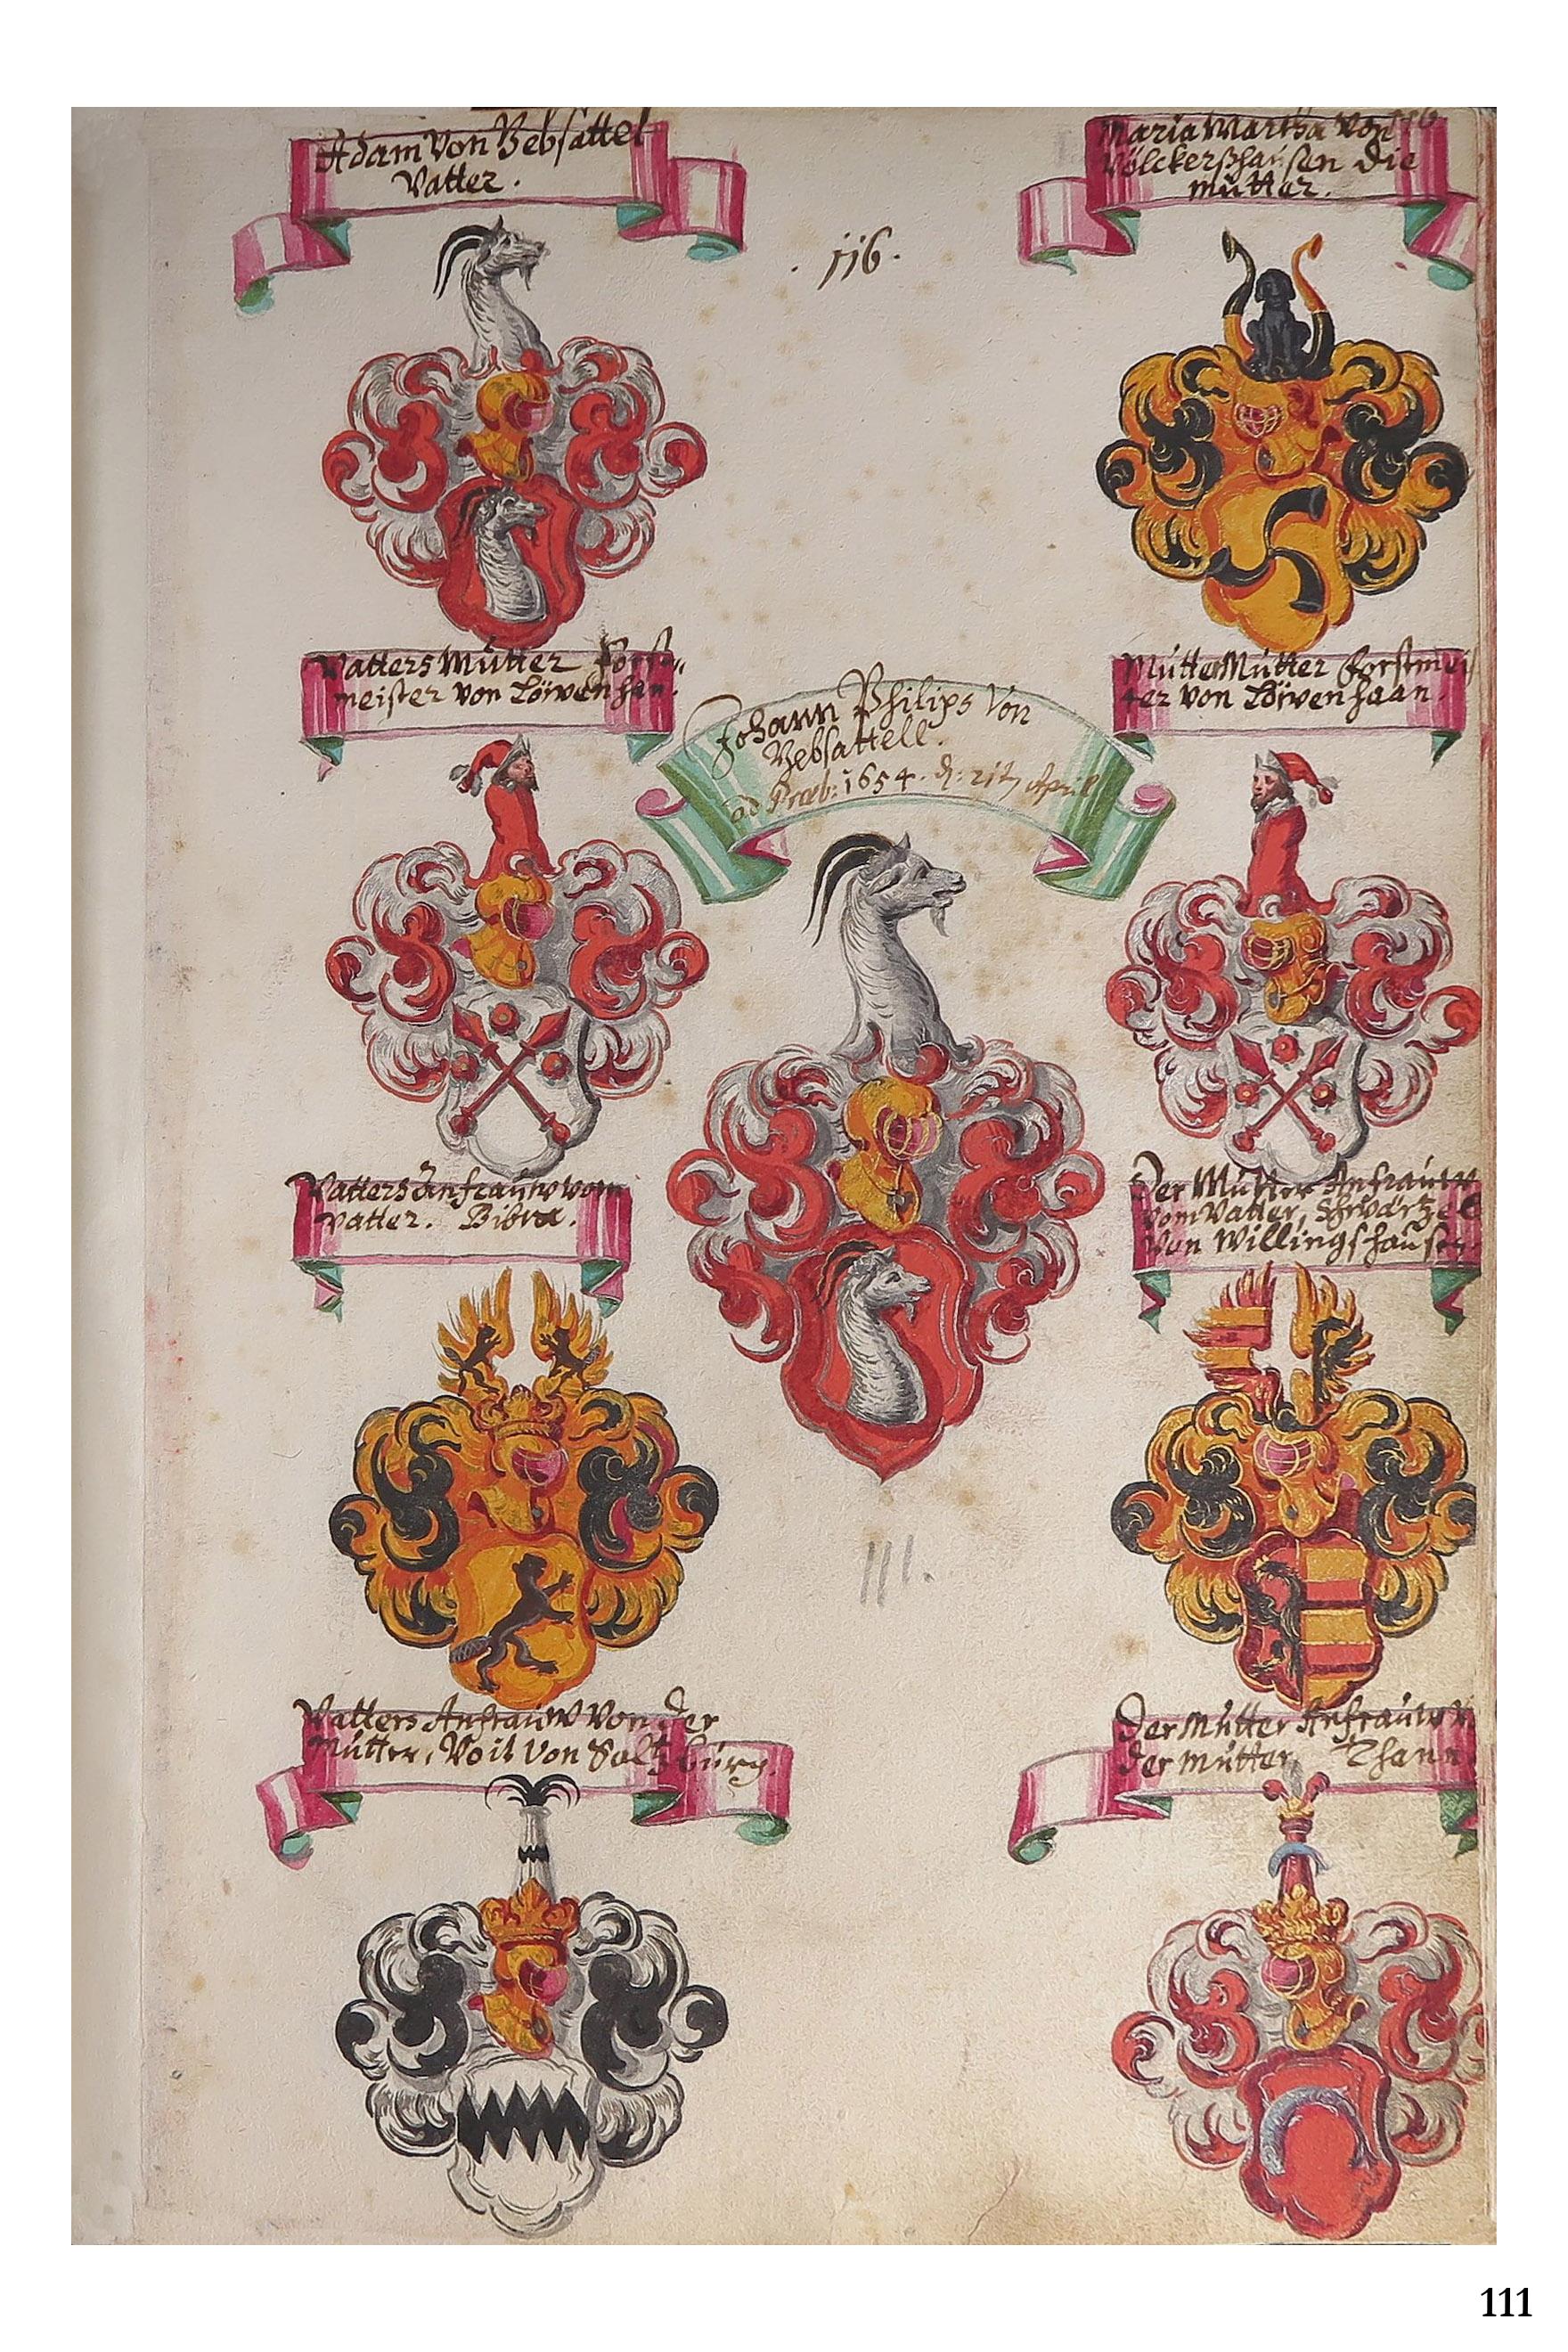 Adam von Vebsattel
Vatter.
Maria Martha von
Völckerßhaußen die
mütter.
116
.116.
Vatters Mütter Forst-
meister von Löwenhan.
Mütter Mütter Forstmeis
ter von Löwenhaan.
Johann Philips Von
Vebsattell.
ad Praeb: 1654. d: 21t April
Vatters Anfrauw vom
vatter. Bibra.
Der Mutter Anfrauw
vom Vatter, Schwärtzel
von Willingshausen.
111.
Vatters Anfrauw Von der
Mütter, Voit Von Saltzbürg.
Der Mütter Anfrauw
der mütter, Thann
111